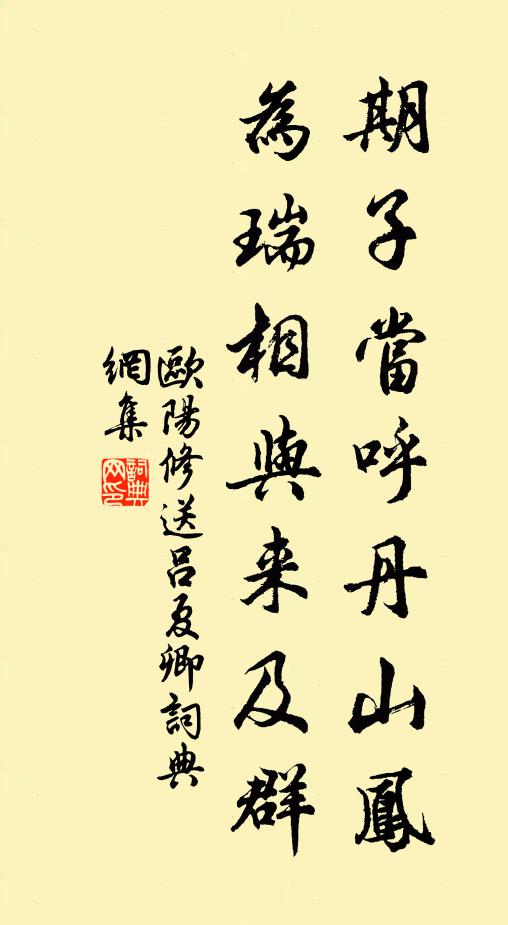 期子當呼丹山鳳
為瑞相與来及群
歐陽修送呂夏卿詞典
網集
詞典
网印